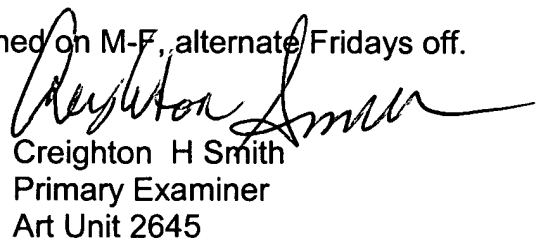 ned on M-F, alternate Fridays off.
Creighton Smith
Creighton H Smith
Primary Examiner
Art Unit 2645